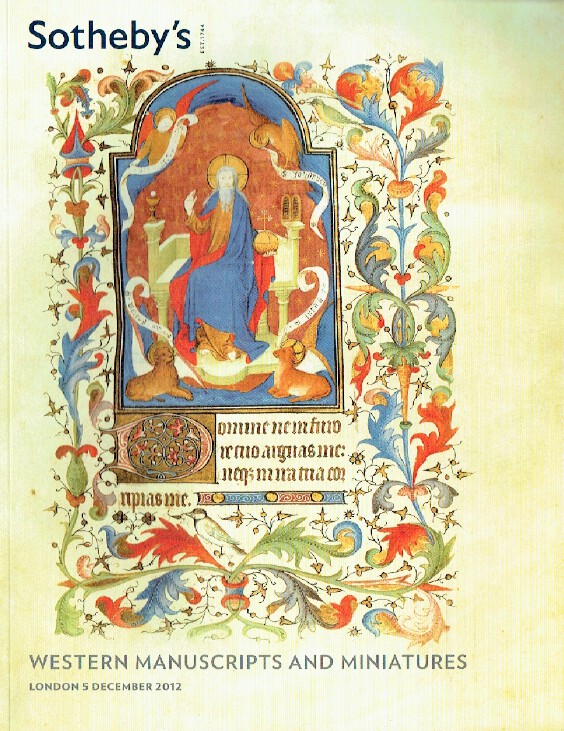 Sotheby's
EST. 1744
Domine ne in furo
re tuo arguas me:
neqz in ira tua cor
ripias me.
WESTERN MANUSCRIPTS AND MINIATURES
LONDON 5 DECEMBER 2012